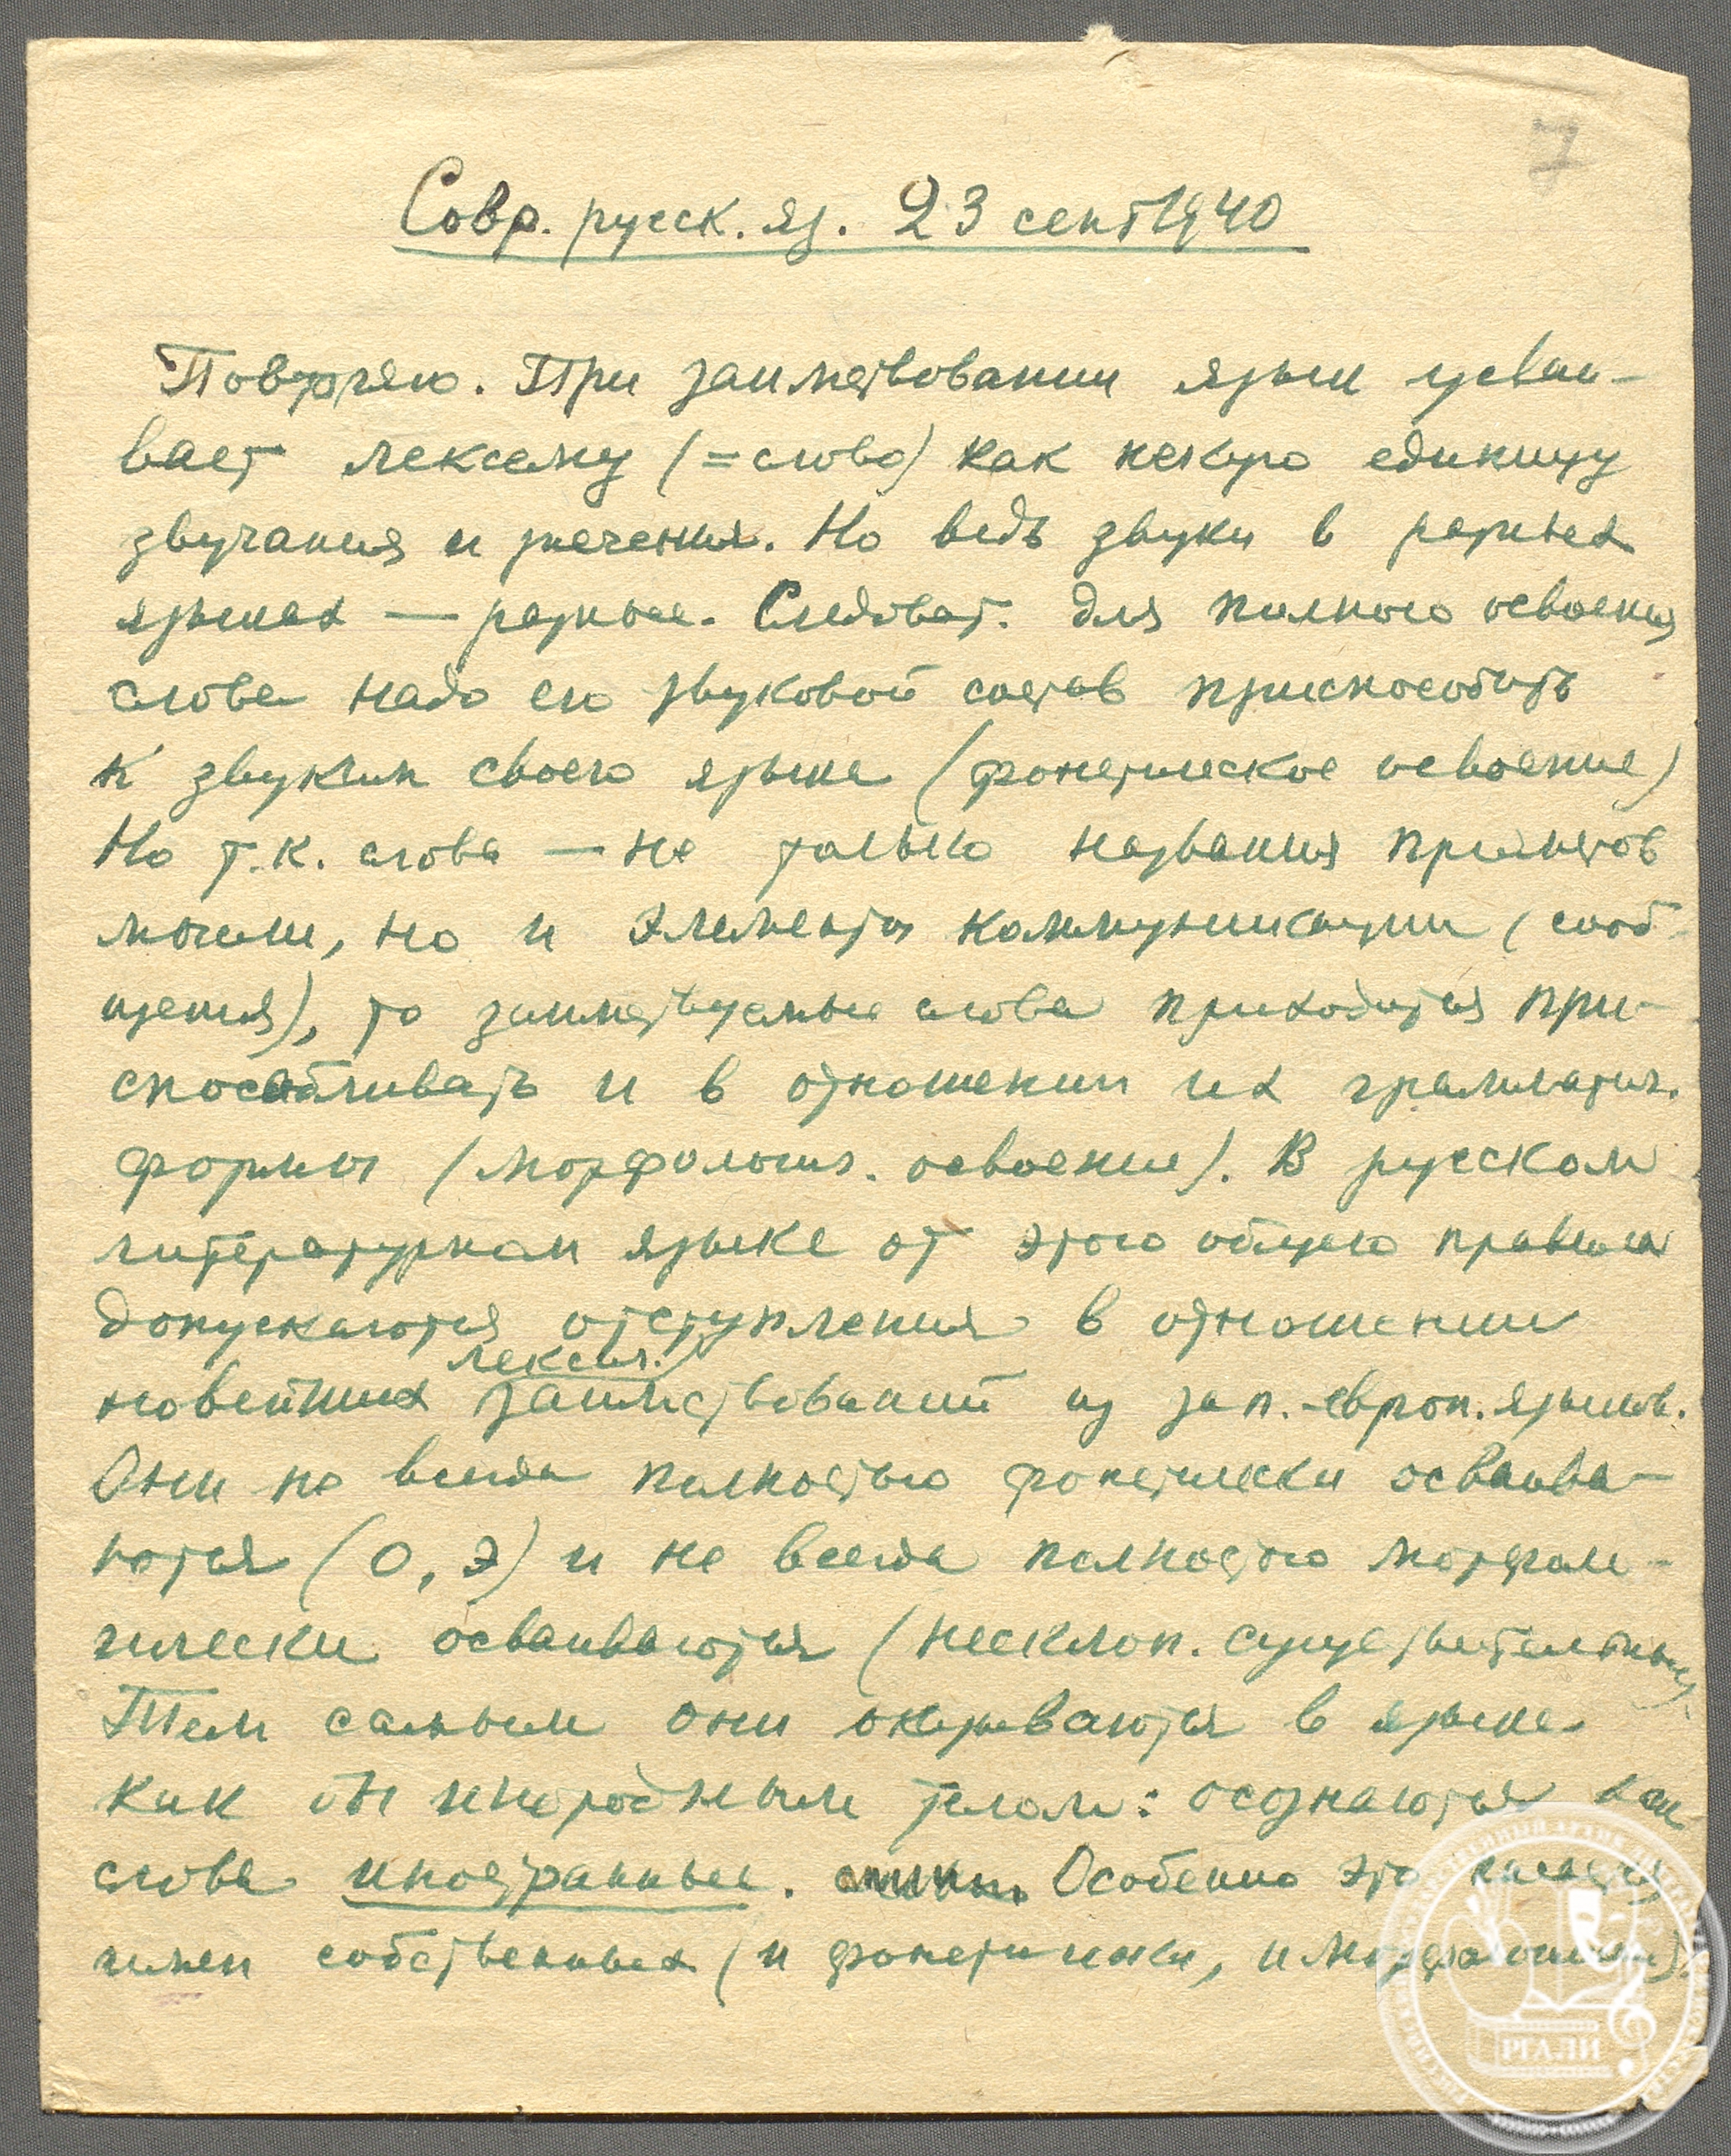 7
Совр. русск. яз. 23 сент 1940
Повторяю. При заимствовании язык усваи-
вает лексему (= слово) как некую единицу
звучания и значения. Но ведь звуки в разных
языках — разные. Следоват. для полного освоения
слова надо его звуковой состав приспособить
к звукам своего языка (фонетическое освоение)
Но т.к. слова — не только названия предметов
мысли, но и элементы коммуникации (сооб-
щения), то заимствуемые слова приходится при-
способливать и в отношении их грамматич.
формы (морфологич. освоение). В русском
литературном языке от этого общего правила
допускаются отступления в отношении
лексич.
новейших заимствований из зап.-европ. языков.
Они не всегда полностью фонетически осваива-
ются (о, э) и не всегда полностью морфоло-
гически осваиваются (несклон. существительные)
Тем самым они оказываются в языке
как бы инородным телом: осознаются как
слова иностранные. Особенно это касается
имен собственных (и фонетически, и морфологически).
РГАЛИ